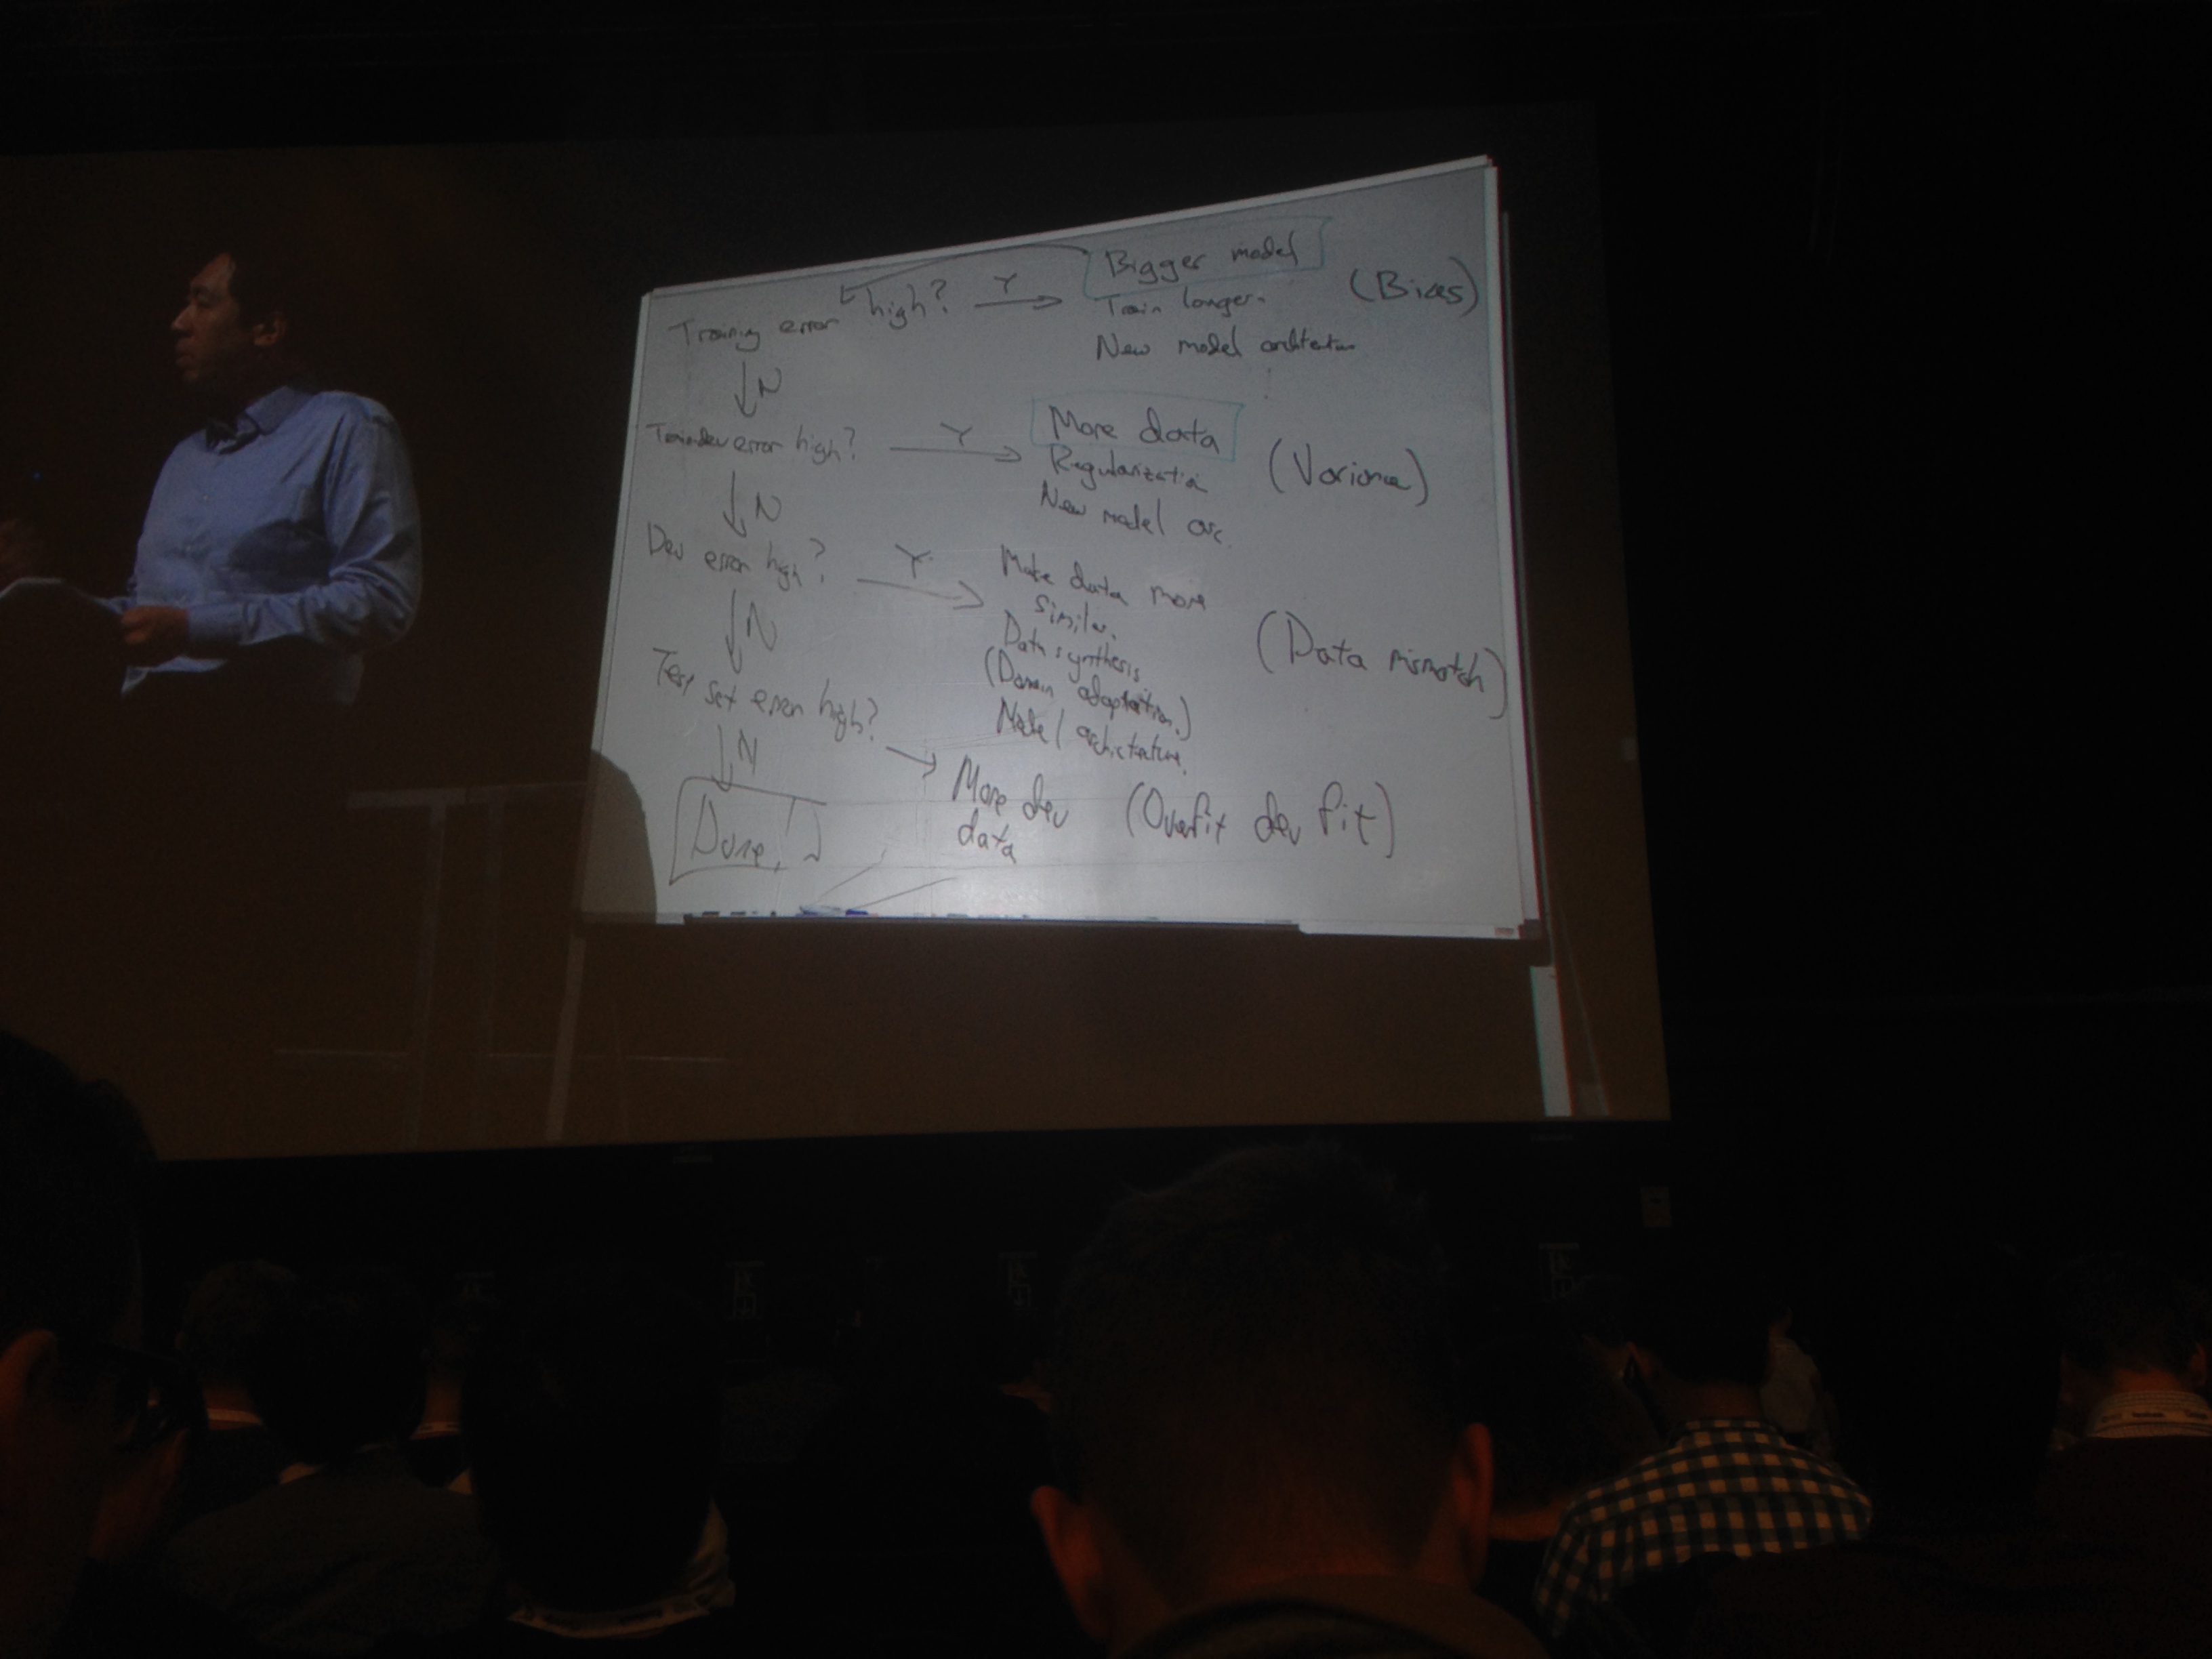 Training error high?
Y
Bigger model
(Bias)
Train longer.
New model architecture
N
Train-dev error high?
Y
More data
(Variance)
Regularization
New model arc.
N
Dev error high?
Y
Make data more
similar.
(Data mismatch)
Data synthesis
(Domain adaptation.)
Model architecture.
N
Test set error high?
More dev
data
(Overfit dev fit)
N
Done!